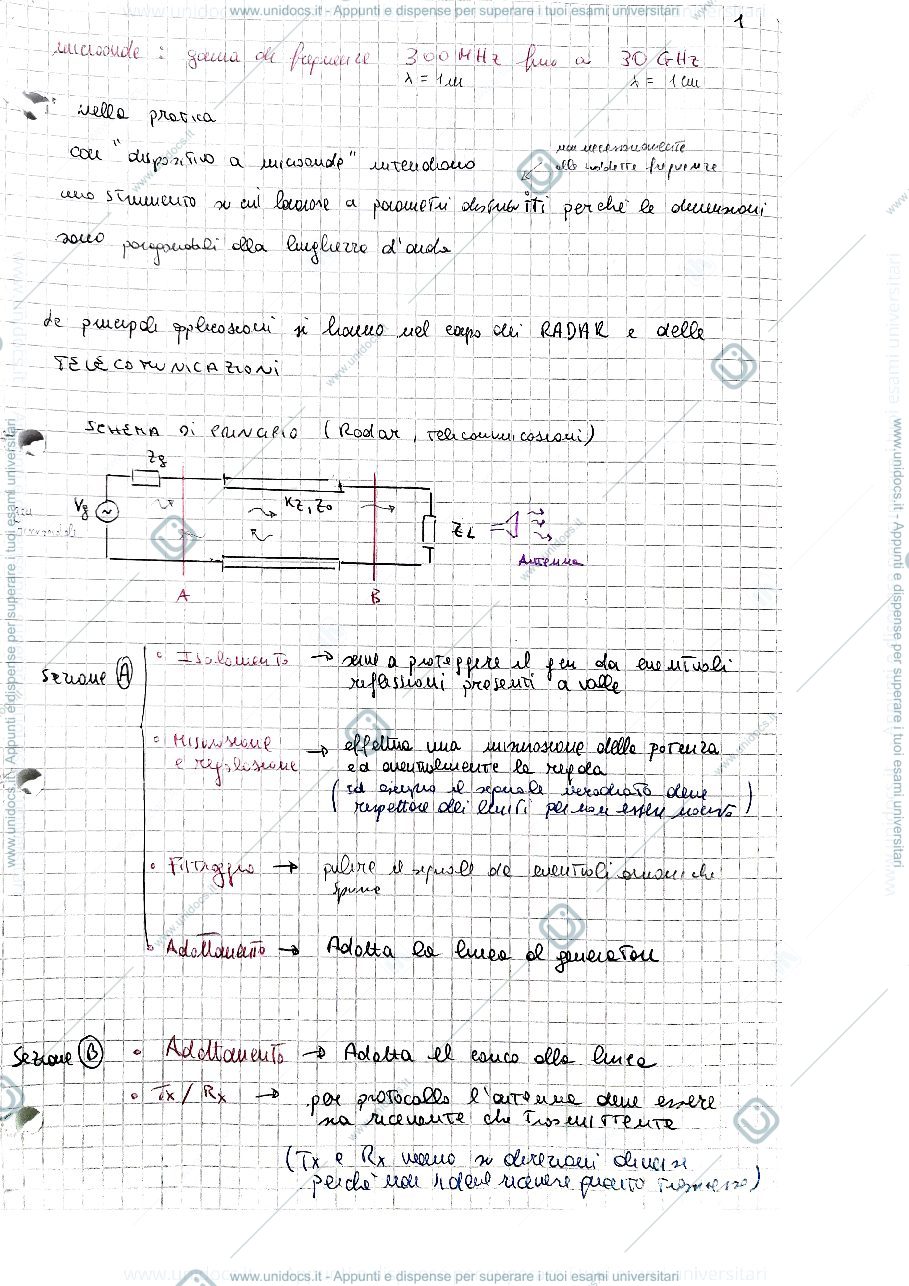 www.unidocs.it - Appunti e dispense per superare i tuoi esami universitari
1
microonde : gamma di frequenze 300 MHz fino a 30 GHz
λ = 1 m λ = 1 cm
nella pratica
con "dispositivo a microonde" intendiamo
non necessariamente
alle suddette frequenze
uno strumento su cui lavorare a parametri distribuiti perché le dimensioni
sono paragonabili alla lunghezza d'onda
Le principali applicazioni si hanno nel campo dei RADAR e delle
TELECOMUNICAZIONI
SCHEMA DI PRINCIPIO (Radar, telecomunicazioni)
Zg
Vg
Kz, Zo
ZL =
Antenna
A B
Sezione A
• Isolamento → serve a proteggere il gen da eventuali
riflessioni presenti a valle
• Misurazione
e regolazione → effettua una misurazione della potenza
ed eventualmente la regola
(ad esempio il segnale irradiato deve
rispettare dei limiti per non essere nocivo)
• Filtraggio → pulire il segnale da eventuali armoniche
spurie
• Adattamento → Adatta la linea al generatore
Sezione B
• Adattamento → Adatta il carico alla linea
• Tx / Rx → per protocollo l'antenna deve essere
sia ricevente che trasmittente
(Tx e Rx vanno su direzioni diverse
perché non si deve ricevere quanto trasmesso)
www.unidocs.it - Appunti e dispense per superare i tuoi esami universitari